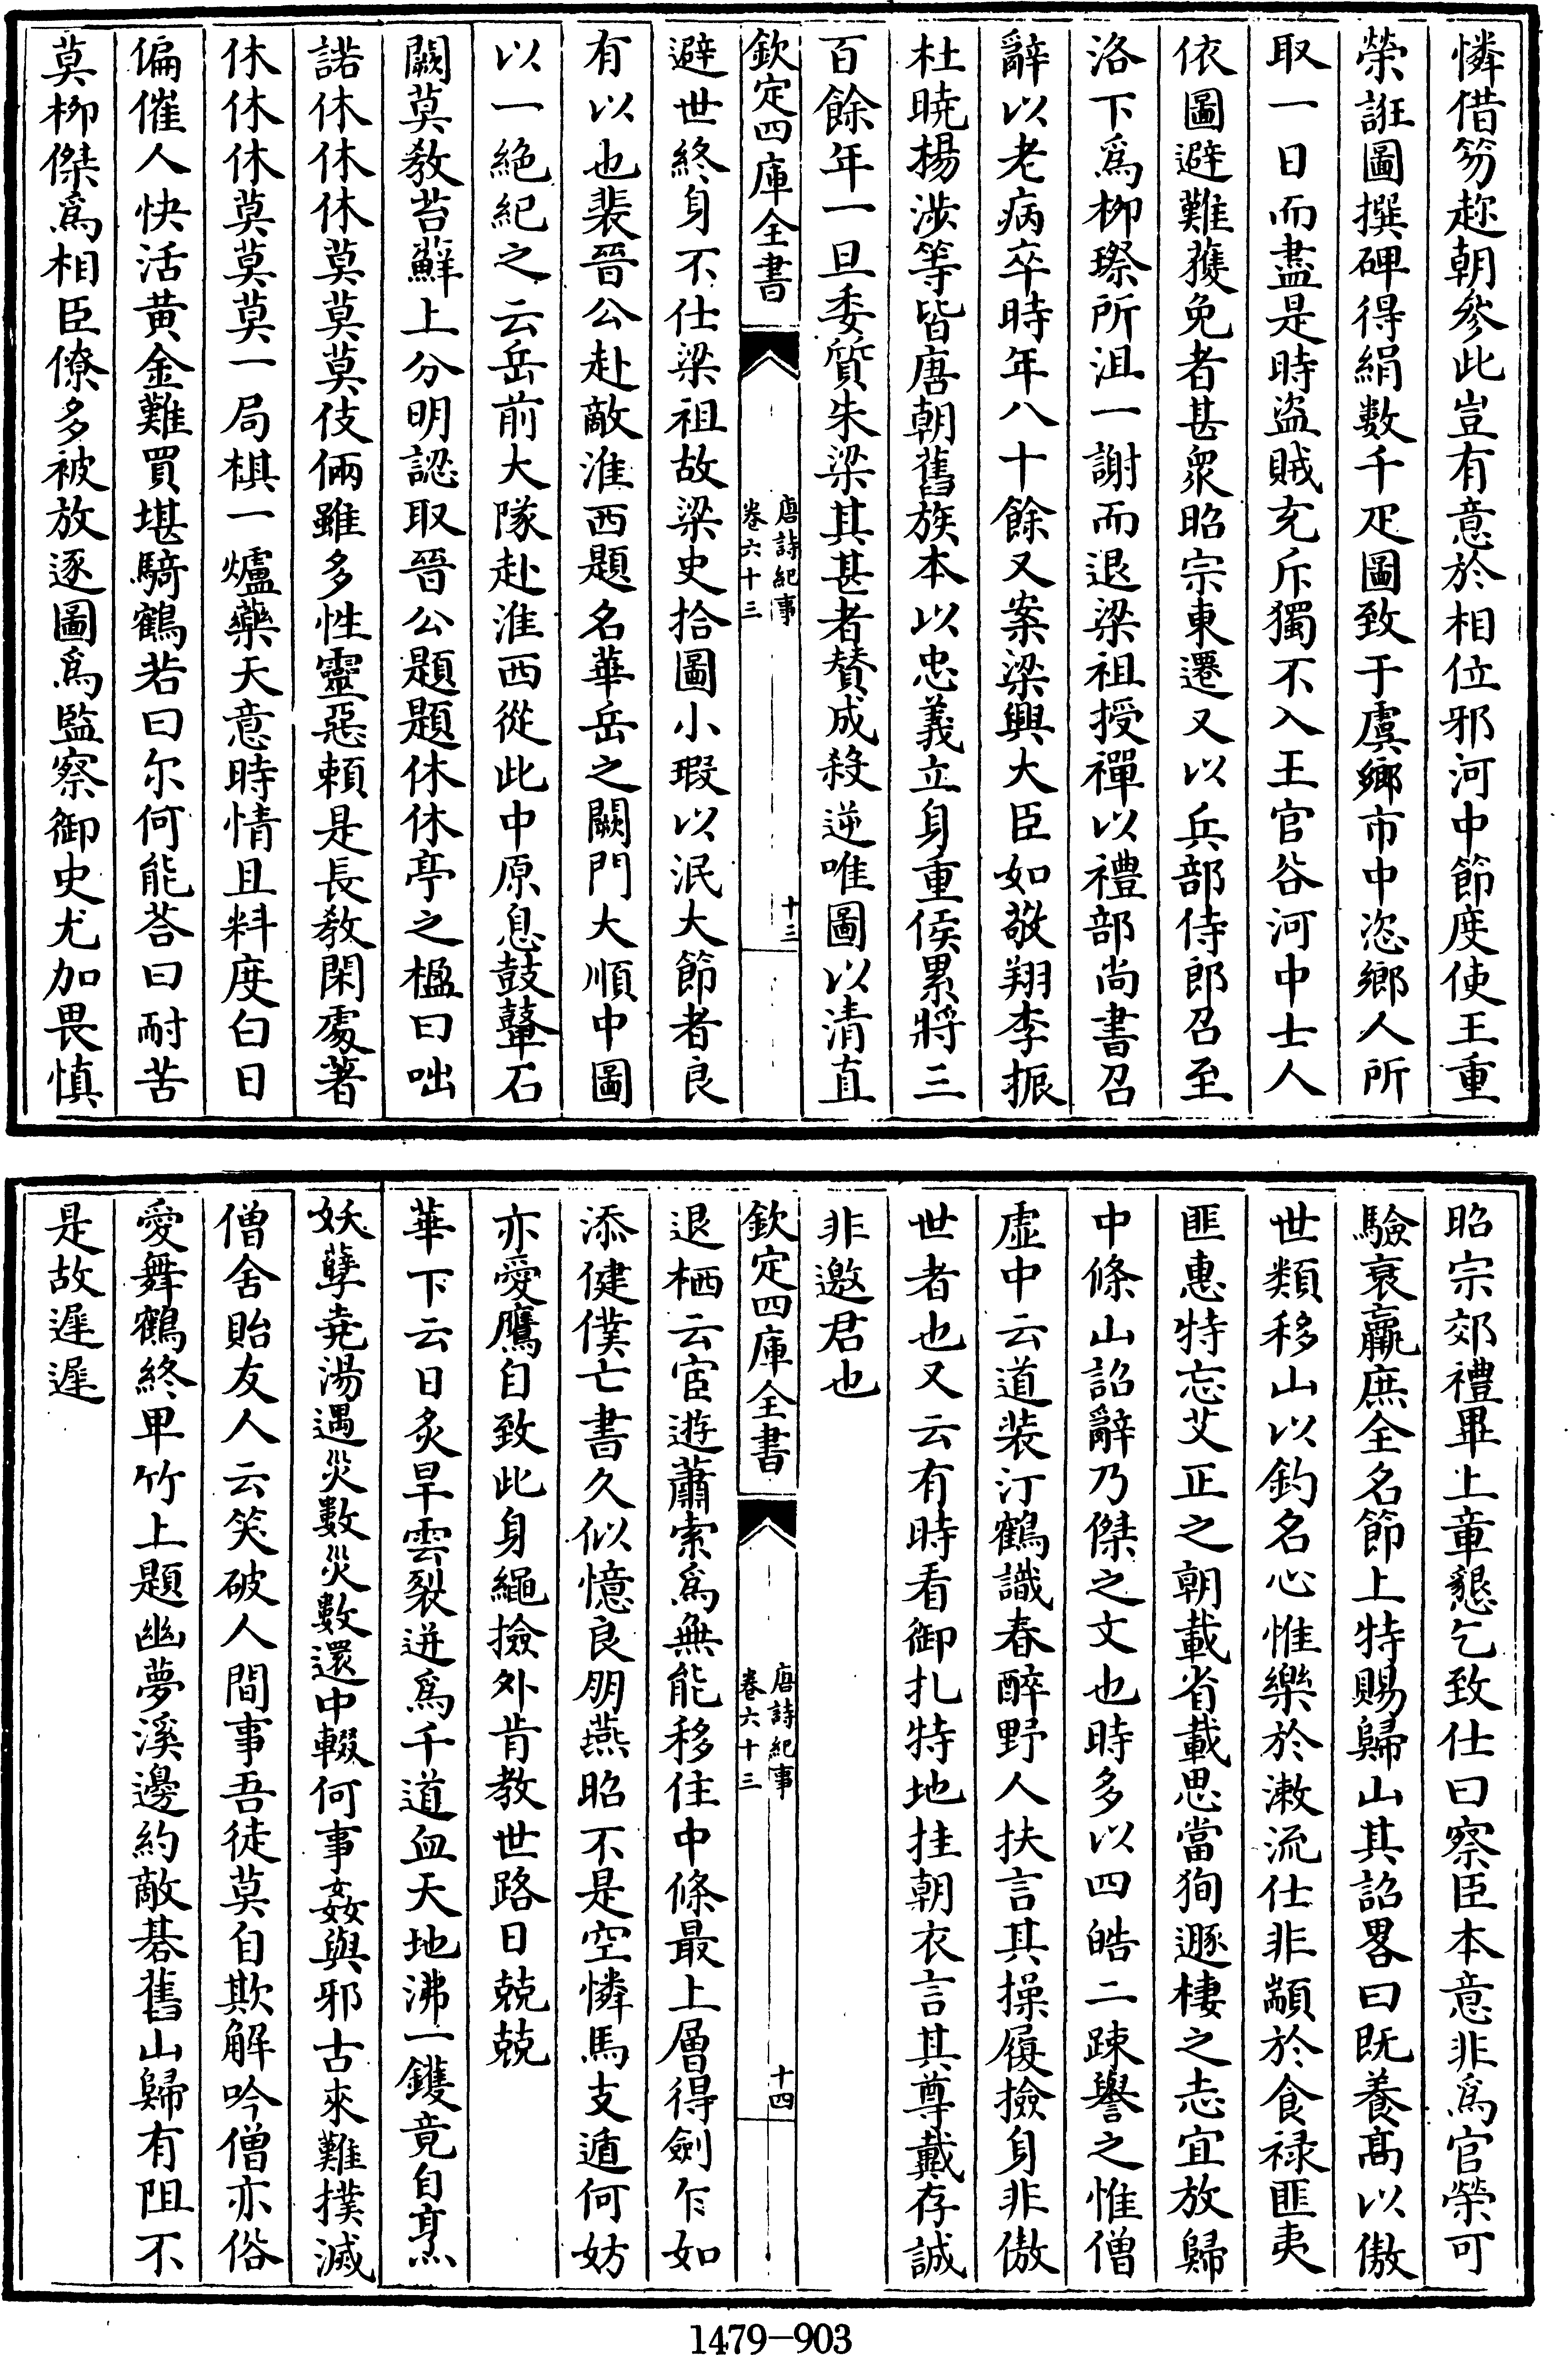 憐借笏趂朝參此豈有意於相位邪河中節度使王重
榮誑圖撰碑得絹數千疋圖致于虞鄉市中恣鄉人所
取一日而盡是時盗賊充斥獨不入王官谷河中士人
依圖避難獲免者甚衆昭宗東遷又以兵部侍郎召至
洛下為柳璨所沮一謝而退梁祖授禪以禮部尚書召
辭以老病卒時年八十餘又案梁興大臣如敬翔李振
杜曉楊涉等皆唐朝舊族本以忠義立身重侯累將三
百餘年一旦委質朱梁其甚者賛成殺逆唯圖以清直
欽定四庫全書
唐詩紀事
卷六十三
十三
避世終身不仕梁祖故梁史拾圖小瑕以泯大節者良
有以也裴晉公赴敵淮西題名華岳之闕門大順中圖
以一絶紀之云岳前大隊赴淮西從此中原息鼓鼙石
闕莫教苔蘚上分明認取晉公題題休休亭之楹曰咄
諾休休休莫莫莫伎倆雖多性靈惡頼是長教閑處著
休休休莫莫莫一局棋一爐藥天意時情且料度白日
偏催人快活黄金難買堪騎鶴若曰尔何能荅曰耐苦
莫柳傑為相臣僚多被放逐圖為監察御史尤加畏慎
昭宗郊禮畢上章懇乞致仕曰察臣本意非為官榮可
驗衰羸庶全名節上特賜歸山其詔畧曰既養髙以傲
世類移山以釣名心惟樂於漱流仕非顓於食禄匪夷
匪惠特忘艾正之朝載省載思當狥遯棲之志宜放歸
中條山詔辭乃傑之文也時多以四皓二疎譽之惟僧
虚中云道装汀鶴識春醉野人扶言其操履撿身非傲
世者也又云有時看御札特地挂朝衣言其尊戴存誠
非邀君也
欽定四庫全書
唐詩紀事
卷六十三
十四
退栖云宦遊蕭索為無能移住中條最上層得劍乍如
添健僕亡書久似憶良朋燕昭不是空憐馬支遁何妨
亦愛鷹自致此身繩撿外肯教世路日兢兢
華下云日炙旱雲裂迸為千道血天地沸一鑊竟自烹
妖孽堯湯遇災數災數還中輟何事姦與邪古來難撲滅
僧舍貽友人云笑破人間事吾徒莫自欺解吟僧亦俗
愛舞鶴終卑竹上題幽夢溪邊約敵碁舊山歸有阻不
是故遲遲
1479-903